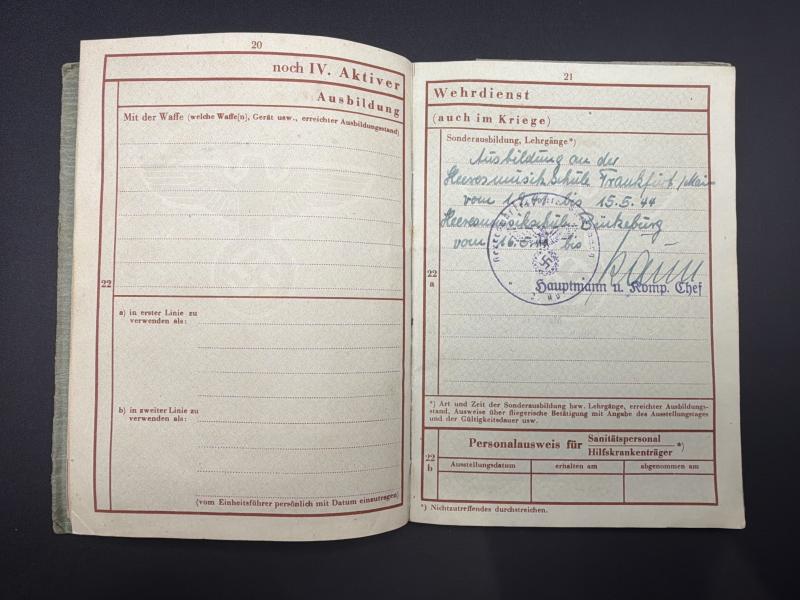 20
noch IV. Aktiver
Ausbildung
Mit der Waffe (welche Waffe[n], Gerät usw., erreichter Ausbildungsstand)
22
a) in erster Linie zu
verwenden als:
b) in zweiter Linie zu
verwenden als:
(vom Einheitsführer persönlich mit Datum einzutragen)
21
Wehrdienst
(auch im Kriege)
Sonderausbildung, Lehrgänge*)
Ausbildung an der
Heeresmusikschule Frankfurt/Main
vom bis 15.5.44
Heeresmusikschule Bückeburg
vom bis
22
a
Hauptmann u. Komp. Chef
*) Art und Zeit der Sonderausbildung bzw. Lehrgänge, erreichter Ausbildungs-
stand, Ausweise über fliegerische Betätigung mit Angabe des Ausstellungstages
und der Gültigkeitsdauer usw.
22
b
Personalausweis für Sanitätspersonal *)
Hilfskrankenträger
Ausstellungsdatum erhalten am abgenommen am
*) Nichtzutreffendes durchstreichen.